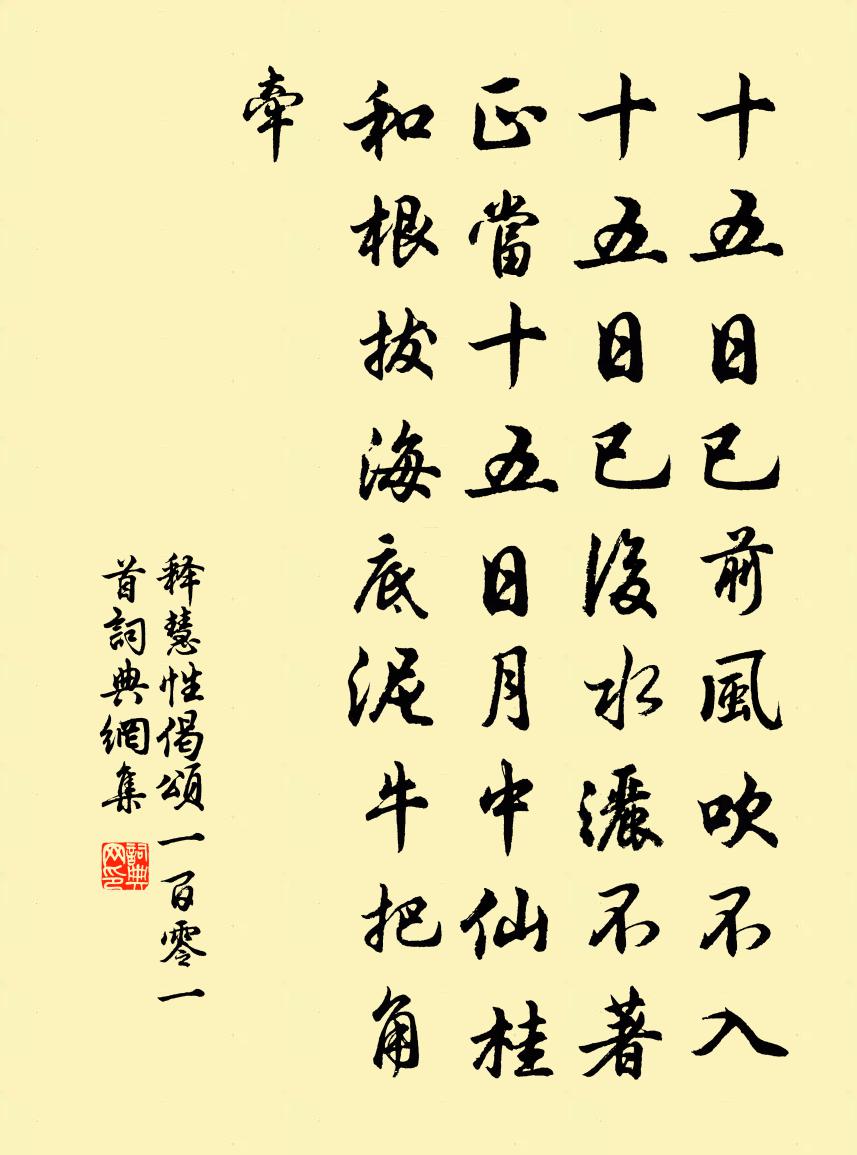 十五日已前風吹不入
十五日已後水灑不著
正當十五日月中仙桂
和根拔海底泥牛把角
牽
释慧性偈頌一百零一
首詞典網集
詞典
网印